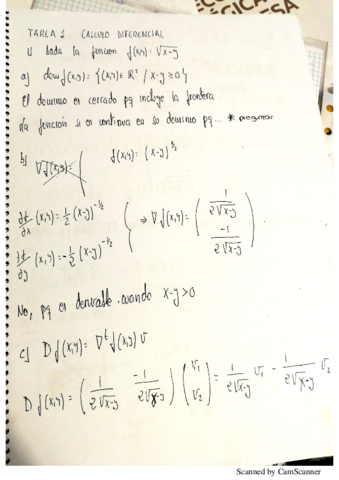 TAREA 1 CALCULO DIFERENCIAL
1) Dada la funcion f(x,y) = √x-y
a) dom f(x,y) = {(x,y) ∈ ℝ² / x-y ≥ 0}
El dominio es cerrado pq incluye la frontera
La función si es continua en su dominio pq... * preguntar
b) ∇f(x,y) = ( f(x,y) = (x-y)^1/2
∂f/∂x (x,y) = 1/2 (x-y)^-1/2
∂f/∂y (x,y) = -1/2 (x-y)^-1/2
⇒ ∇f(x,y) = ( 1/2√x-y -1/2√x-y )
No, pq es derivable cuando x-y>0
c) Df(x,y) = ∇ᵗf(x,y) v
Df(x,y) = ( 1/2√x-y -1/2√x-y ) ( v₁ v₂ ) = 1/2√x-y v₁ - 1/2√x-y v₂
Scanned by CamScanner